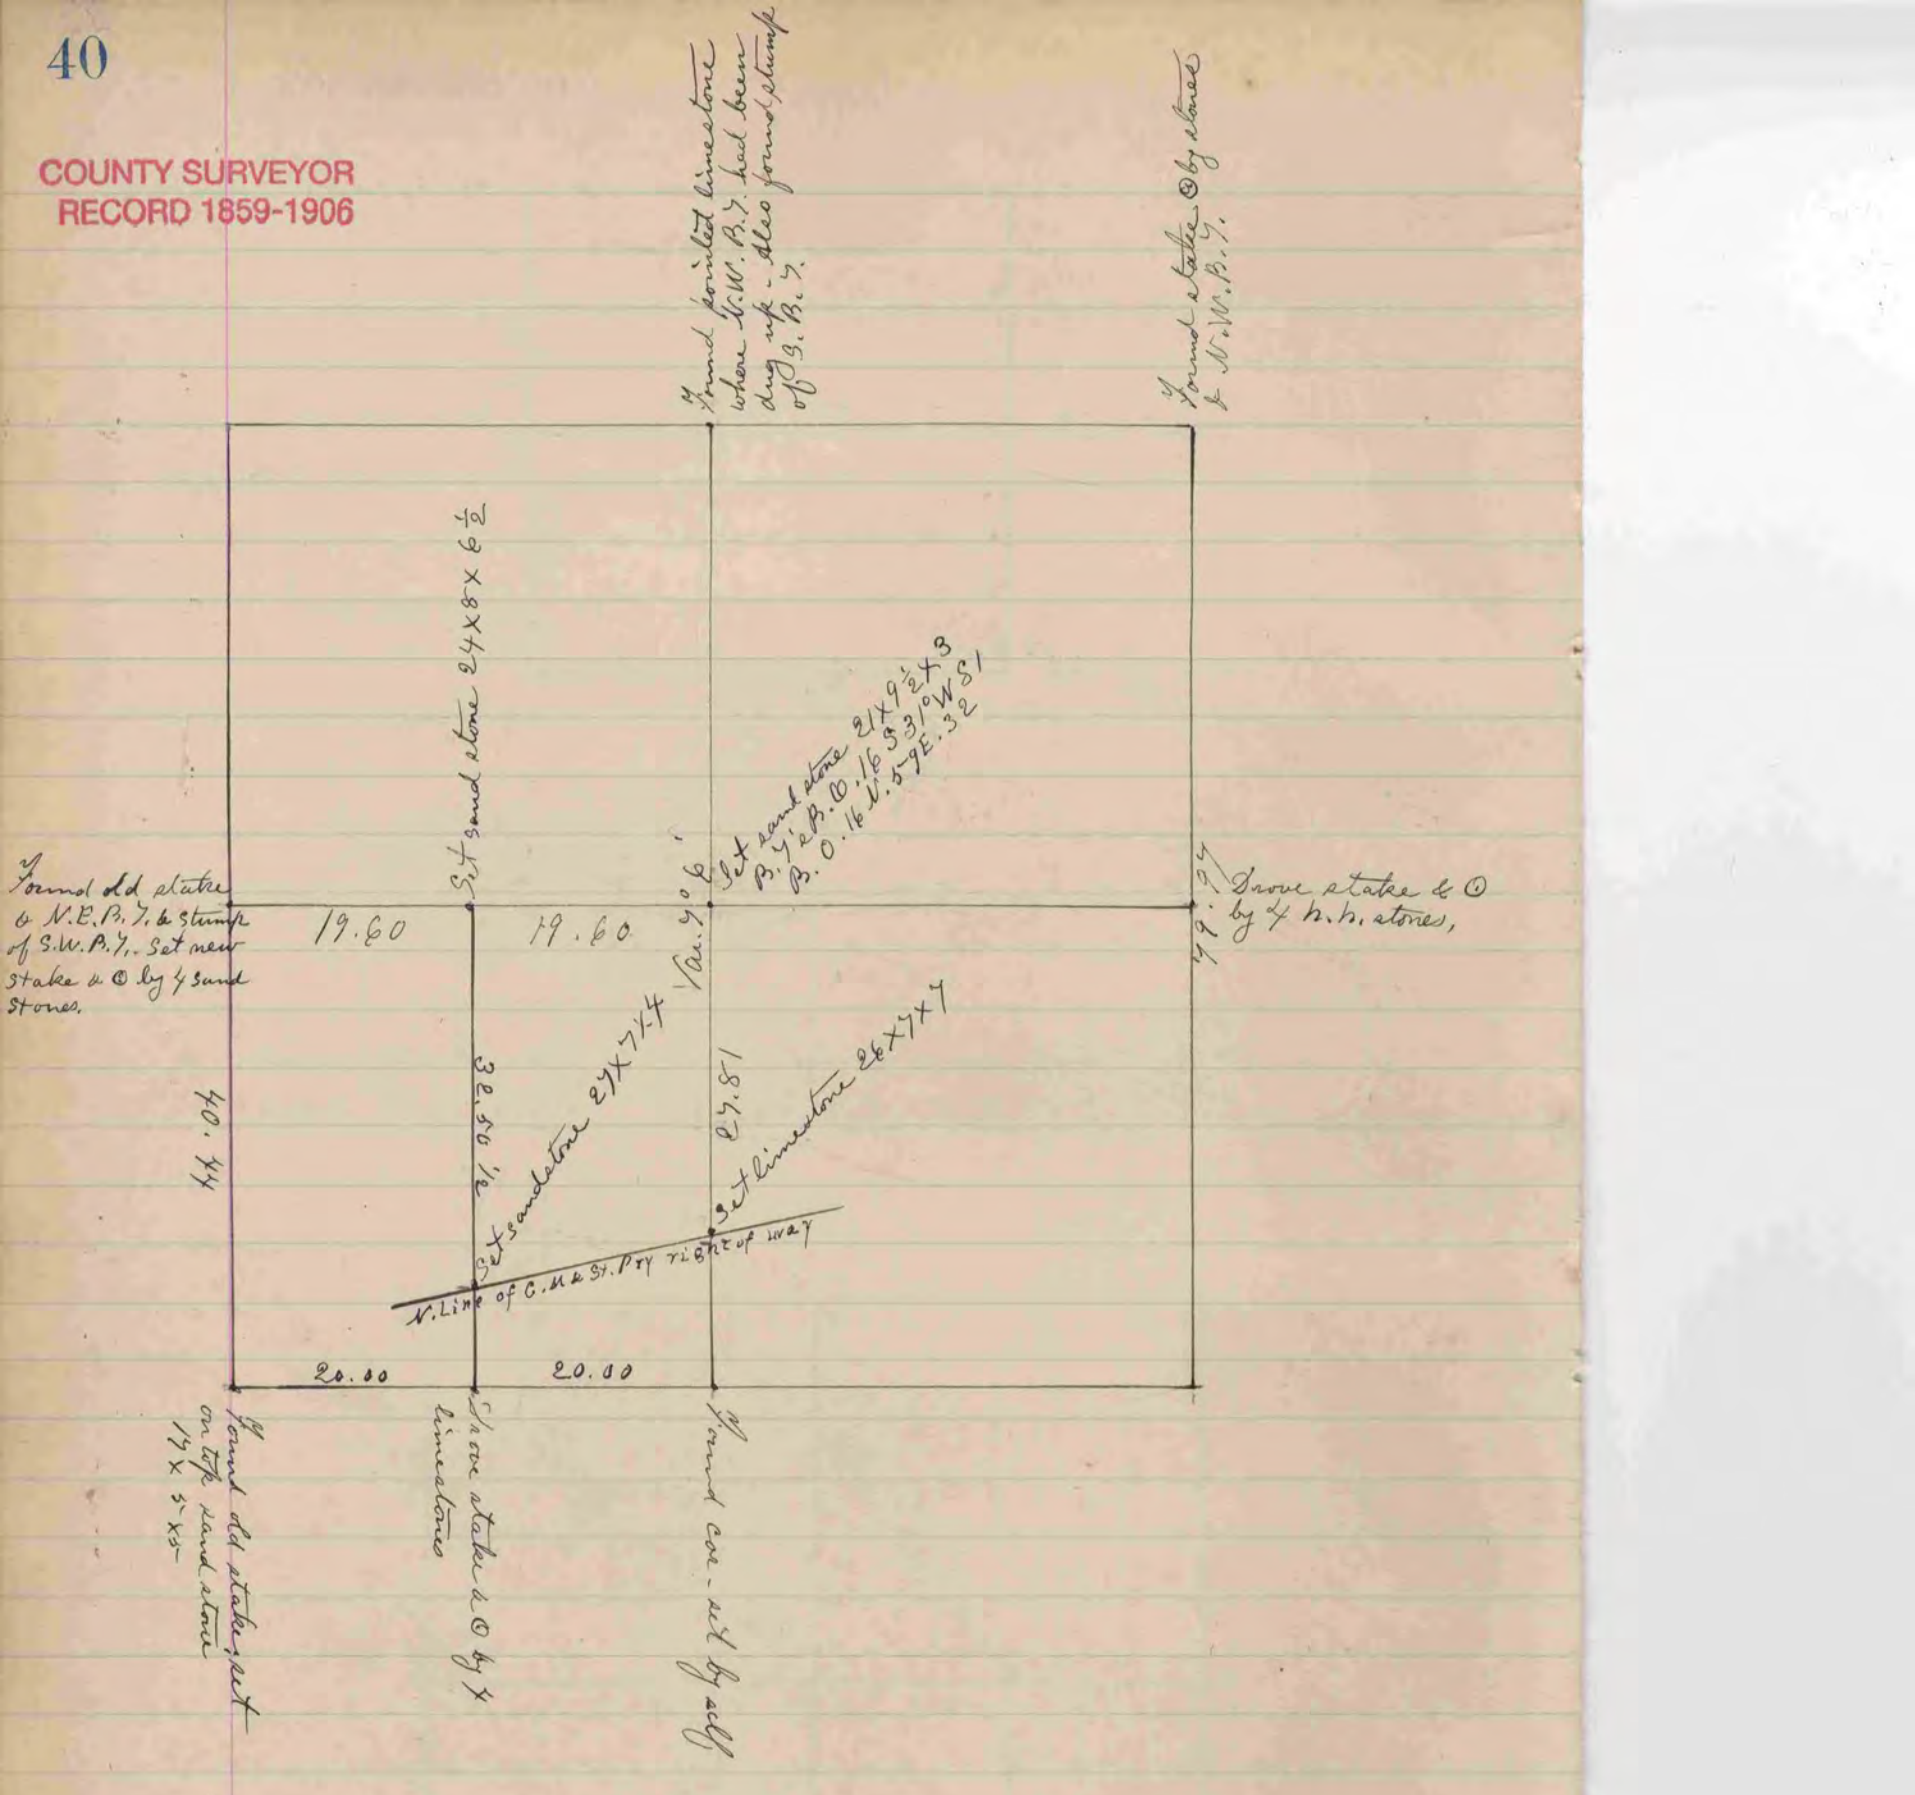 40
COUNTY SURVEYOR
RECORD 1859-1906
Found pointed limestone
where N.W. B.T. had been
dug up - Also found stump
of S. B. T.
Found stake ⊙ by stones
& N.W. B.T.
Set sand stone 24 x 8 x 6 1/2
Set sand stone 21 x 9 1/2 x 3
Var. 7° 6'
Found old stake
& N.E. B.T. & stump
of S.W. B.T. Set new
stake & ⊙ by 4 sand
stones.
19.60
19.60
79.97
Drove stake & ⊙
by 4 h.h. stones,
40.44
32.50 1/2
27.81
Set sandstone 27 x 7 x 4
Set limestone 26 x 7 x 7
N. Line of C. M & St. P ry right of way
20.00
20.00
Found old stake, set
on top sand stone
17 x 5 x 5
Drove stake & ⊙ by 4
limestones
Found cor - set by self